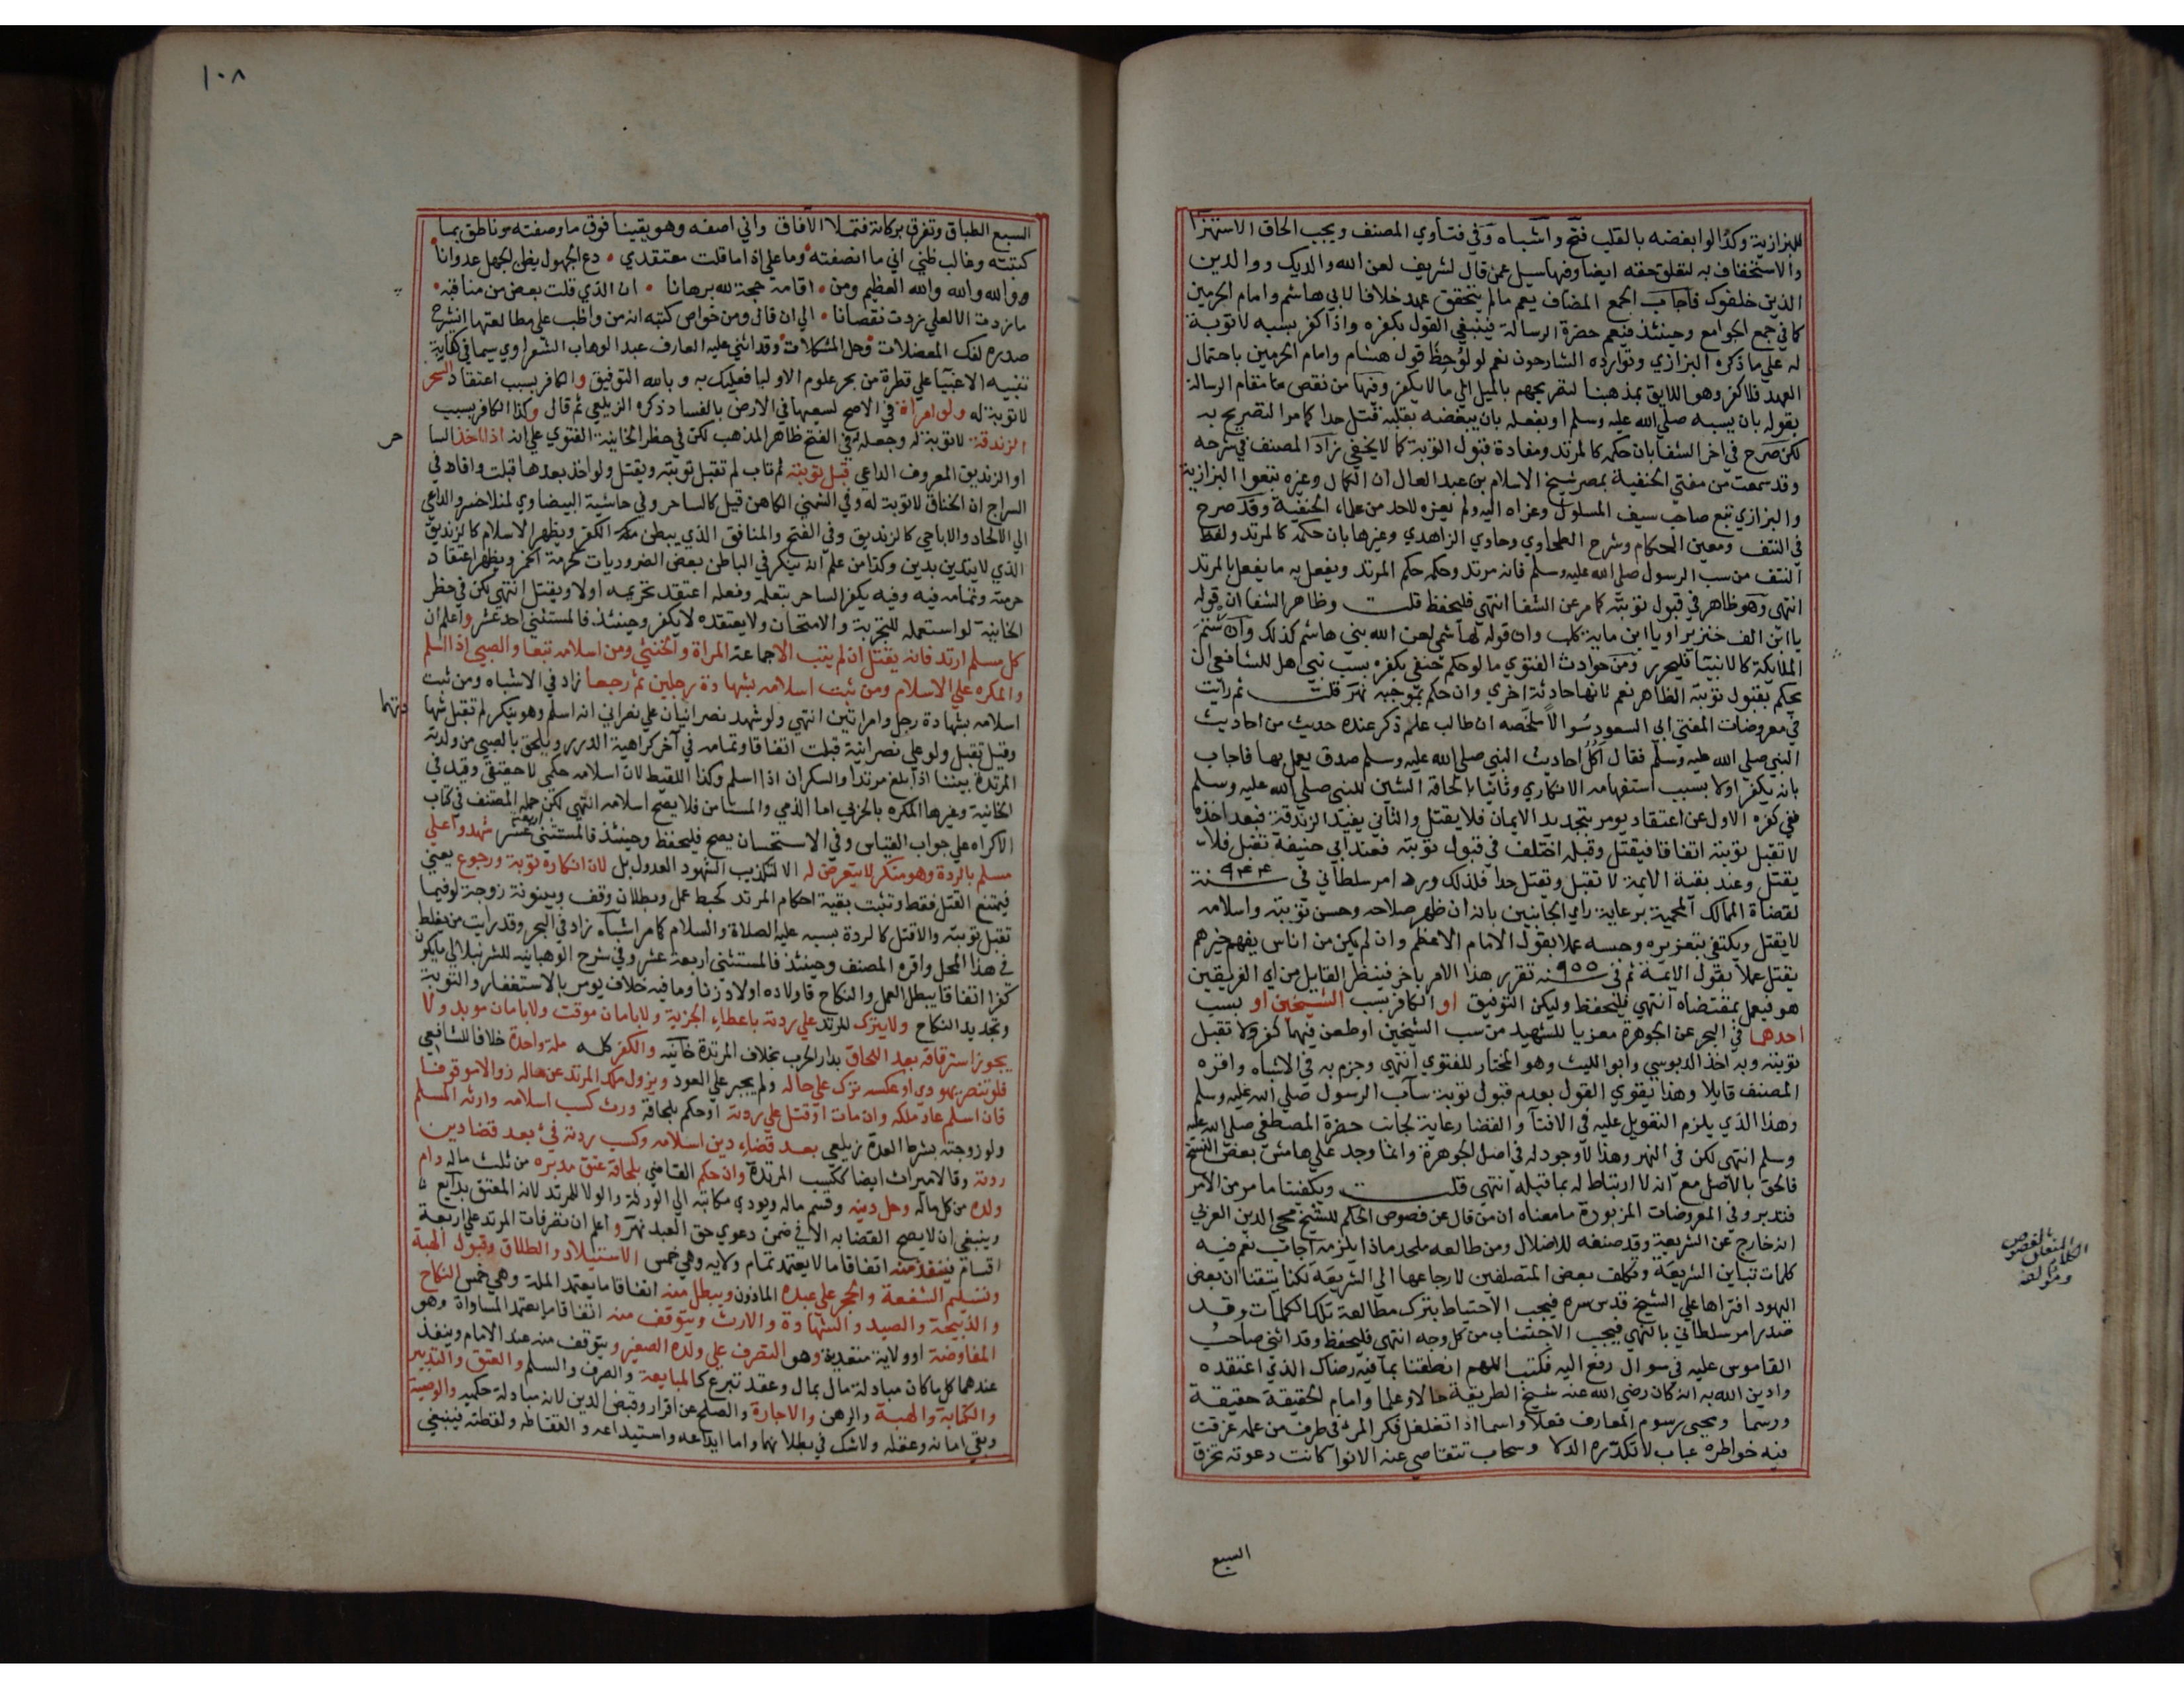 للبزازية وكذا لو ابغضه بالقلب فتح واشباه وفي فتاوي المصنف ويجب الحاق الاستهزا
والاستخفاف به لتعلق حقه ايضا وفيها سيل عمن قال لشريف لعن الله والديك ووالدين
الذين خلفوك فاجاب الجمع المضاف يعم مالم يتحقق عهد خلافا لابي هاشم وامام الحرمين
كما في جمع الجوامع وحينئذ فيعم حضرة الرسالة فينبغي القول بكفره واذا كفر بسبه لا توبة
له علي ما ذكره البزازي وتوارده الشارحون نعم لو لوحظ قول هشام وامام الحرمين باحتمال
العهد فلا كفر وهو اللايق بمذهبنا لتصريحهم بالميل الي ما لا يكفر وفيها من نقص مقام الرسالة
بقوله بان يسبه صلي الله عليه وسلم او بفعله بان يبغضه بقلبه قتل حدا كما مر التصريح به
لكن صرح في اخر الشفا بان حكمه كالمرتد ومفاده قبول التوبة كما لا يخفي زاد المصنف في شرحه
وقد سمعت من مفتي الحنفية بمصر شيخ الاسلام بن عبد العال ان الكمال وغيره تبعوا البزازية
والبزازي تبع صاحب سيف المسلول وعزاه اليه ولم يعزه لاحد من علماء الحنفية وقد صرح
في النتف ومعين الحكام وشرح الطحاوي وحاوي الزاهدي وغيرها بان حكمه كالمرتد ولفظ
النتف من سب الرسول صلي الله عليه وسلم فانه مرتد وحكمه حكم المرتد ويفعل به ما يفعل بالمرتد
انتهي وهو ظاهر في قبول توبته كما مر عن الشفا انتهي فليحفظ قلت وظاهر الشفا ان قوله
يا ابن الف خنزير او يا ابن ماية كلب وان قوله لهاشمي لعن الله بني هاشم كذلك وان شتم
الملايكة كالانبيا فليحرر ومن حوادث الفتوي ما لو حكم حنفي بكفره بسب نبي هل للشافعي ان
يحكم بقبول توبته الظاهر نعم لانها حادثة اخري وان حكم بموجبه نهر قلت ثم رايت
في معروضات المفتي ابي السعود سوالا ملخصه ان طالب علم ذكر عنده حديث من احاديث
النبي صلي الله عليه وسلم فقال اكل احاديث النبي صلي الله عليه وسلم صدق يعمل بها فاجاب
بانه يكفر اولا بسبب استفهامه الانكاري وثانيا بالحاقه الشين للنبي صلي الله عليه وسلم
ففي كفره الاول عن اعتقاد يومر بتجديد الايمان فلا يقتل والثاني يفيد الزندقة فبعد اخذه
لا تقبل توبته اتفاقا فيقتل وقبله اختلف في قبول توبته فعند ابي حنيفة تقبل فلا
يقتل وعند بقية الايمة لا تقبل وتقتل حدا فلذلك ورد امر سلطاني في سنة ٩٤٤
لقضاة الممالك المحمية برعاية راي الجانبين بانه ان ظهر صلاحه وحسن توبته واسلامه
لا يقتل ويكتفي بتعزيره وحبسه عملا بقول الامام الاعظم وان لم يكن من اناس يفهم خيرهم
يقتل عملا بقول الايمة ثم في سنة ٩٥٥ تقرر هذا الامر باخر فينظر القايل من اي الفريقين
هو فيعمل بمقتضاه انتهي فليحفظ وليكن التوفيق او الكافر بسب الشيخين او بسب
احدهما في البحر عن الجوهرة معزيا للشهيد من سب الشيخين او طعن فيهما كفر ولا تقبل
توبته وبه اخذ الدبوسي وابو الليث وهو المختار للفتوي انتهي وجزم به في الاشباه واقره
المصنف قايلا وهذا يقوي القول بعدم قبول توبة ساب الرسول صلي الله عليه وسلم
وهذا الذي يلزم التعويل عليه في الافتا والقضا رعاية لجانب حضرة المصطفي صلي الله عليه
وسلم انتهي لكن في النهر وهذا لا وجود له في اصل الجوهرة وانما وجد علي هامش بعض النسخ
فالحق بالاصل مع انه لا ارتباط له بما قبله انتهي قلت ويكفينا ما مر من الامر
فتدبر وفي المعروضات المزبورة ما معناه ان من قال عن فصوص الحكم للشيخ محيي الدين العربي
انه خارج عن الشريعة وقد صنفه للاضلال ومن طالعه ملحد ماذا يلزمه اجاب نعم فيه
كلمات تباين الشريعة وتكلف بعض المتصلفين لارجاعها الي الشريعة لكنا تيقنا ان بعض
اليهود افتراها علي الشيخ قدس سره فيجب الاحتياط بترك مطالعة تلك الكلمات وقد
صدر امر سلطاني بالنهي فيجب الاجتناب من كل وجه انتهي فليحفظ وقد اثني صاحب
القاموس عليه في سوال رفع اليه فكتب اللهم انطقنا بما فيه رضاك الذي اعتقده
وادين الله به انه كان رضي الله عنه شيخ الطريقة حالا وعلما وامام الحقيقة حقيقة
ورسما ومحيي رسوم المعارف فعلا واسما اذا تغلغل فكر المرء في طرف من علمه غرقت
فيه خواطره عباب لا تكدره الدلا وسحاب تتقاصي عنه الانوا كانت دعوته تخرق
السبع
الكلام المتعلق بالفصوص
ومؤلفه
١٠٨
السبع الطباق وتفرق بركاته فتملا الافاق واني اصفه وهو يقينا فوق ما وصفته وناطق بما
كتبته وغالب ظني اني ما انصفته وما علي اذا ما قلت معتقدي دع الجهول يظن الجهل عدوانا
ووالله والله والله العظيم ومن اقامه حجة لله برهانا ان الذي قلت بعض من مناقبه
ما زدت الا لعلي زدت نقصانا الي ان قال ومن خواص كتبه انه من واظب علي مطالعتها انشرح
صدره لفك المعضلات وحل المشكلات وقد اثني عليه العارف عبد الوهاب الشعراوي سيما في كتابه
تنبيه الاغبيا علي قطرة من بحر علوم الاوليا فعليك به وبالله التوفيق والكافر بسبب اعتقاد السحر
لا توبة له ولو امراة في الاصح لسعيها في الارض بالفساد ذكره الزيلعي ثم قال وكذا الكافر بسبب
الزندقة لا توبة له وجعله في الفتح ظاهر المذهب لكن في حظر الخانية الفتوي علي انه اذا اخذ السا
حر
او الزنديق المعروف الداعي قبل توبته ثم تاب لم تقبل توبته ويقتل ولو اخذ بعدها قبلت وافاد في
السراج ان الخناق لا توبة له وفي الشمني الكاهن قيل كالساحر وفي حاشية البيضاوي لمنلا خسرو الداعي
الي الالحاد والاباحي كالزنديق وفي الفتح والمنافق الذي يبطن الكفر ويظهر الاسلام كالزنديق
الذي لا يتدين بدين وكذا من علم انه ينكر في الباطن بعض الضروريات كحرمة الخمر ويظهر اعتقاد
حرمته وتمامه فيه وفيه يكفر الساحر بتعلمه وفعله اعتقد تحريمه اولا ويقتل انتهي لكن في حظر
الخانية لو استعمله للتجربة والامتحان ولا يعتقده لا يكفر وحينئذ فالمستثني احد عشر واعلم ان
كل مسلم ارتد فانه يقتل ان لم يتب الا جماعة المراة والخنثي ومن اسلامه تبعا والصبي اذا اسلم
والمكره علي الاسلام ومن ثبت اسلامه بشهادة رجلين ثم رجعا زاد في الاشباه ومن ثبت
اسلامه بشهادة رجل وامراتين انتهي ولو شهد نصرانيان علي نصراني انه اسلم وهو ينكر لم تقبل شها
دتهما
وقيل تقبل ولو علي نصرانية قبلت اتفاقا وتمامه في آخر كراهية الدرر ويلحق بالصبي من ولدته
المرتدة بيننا اذا بلغ مرتدا والسكران اذا اسلم وكذا اللقيط لان اسلامه حكمي لا حقيقي وقيد في
الخانية وغيرها المكره بالحربي اما الذمي والمستامن فلا يصح اسلامه انتهي لكن حمله المصنف في كتاب
الاكراه علي جواب القياس وفي الاستحسان يصح فليحفظ وحينئذ فالمستثني اربعة عشر شهدوا علي
مسلم بالردة وهو منكر لا يتعرض له الا لتكذيب الشهود العدول بل لان انكاره توبة ورجوع يعني
فيمتنع القتل فقط وتثبت بقية احكام المرتد كحبط عمل وبطلان وقف وبينونة زوجة لو فيما
تقبل توبته والا قتل كالردة بسبه عليه الصلاة والسلام كما مر اشباه زاد في البحر وقد رايت من يغلط
في هذا المحل واقره المصنف وحينئذ فالمستثني اربعة عشر وفي شرح الوهبانية للشرنبلالي ما يكون
كفرا اتفاقا يبطل العمل والنكاح فاولاده اولاد زنا وما فيه خلاف يومر بالاستغفار والتوبة
وتجديد النكاح ولا يترك المرتد علي ردته باعطاء الجزية ولا بامان موقت ولا بامان موبد ولا
يجوز استرقاقه بعد اللحاق بدار الحرب بخلاف المرتدة خانية والكفر كله ملة واحدة خلافا للشافعي
فلو تنصر يهودي او عكسه ترك علي حاله ولم يجبر علي العود ويزول ملك المرتد عن ماله زوالا موقوفا
فان اسلم عاد ملكه وان مات او قتل علي ردته او حكم بلحاقه ورث كسب اسلامه وارثه المسلم
ولو زوجته بشرط العدة زيلعي بعد قضاء دين اسلامه وكسب ردته فيئ بعد قضا دين
ردته وقالا ميراث ايضا ككسب المرتدة وان حكم القاضي بلحاقه عتق مدبره من ثلث ماله وام
ولده من كل ماله وحل دينه وقسم ماله ويودي مكاتبه الي الورثة والولا للمرتد لانه المعتق بدايع
وينبغي ان لا يصح القضا به الا في ضمن دعوي حق العبد نهر واعلم ان تصرفات المرتد علي اربعة
اقسام فينفذ منه اتفاقا ما لا يعتمد تمام ولايه وهي خمس الاستيلاد والطلاق وقبول الهبة
وتسليم الشفعة والحجر علي عبده الماذون ويبطل منه اتفاقا ما يعتمد الملة وهي خمس النكاح
والذبيحة والصيد والشهادة والارث ويتوقف منه اتفاقا ما يعتمد المساواة وهو
المفاوضة او ولاية متعدية وهو التصرف علي ولده الصغير ويتوقف منه عند الامام وينفذ
عندهما كل ما كان مبادلة مال بمال وعقد تبرع كالمبايعة والصرف والسلم والعتق والتدبير
والكتابة والهبة والرهن والاجارة والصلح عن اقرار وقبض الدين لانه مبادلة حكمية والوصية
وبقي امانه وعقله ولا شك في بطلانهما واما ايداعه واستيداعه والتقاطه ولقطته فينبغي